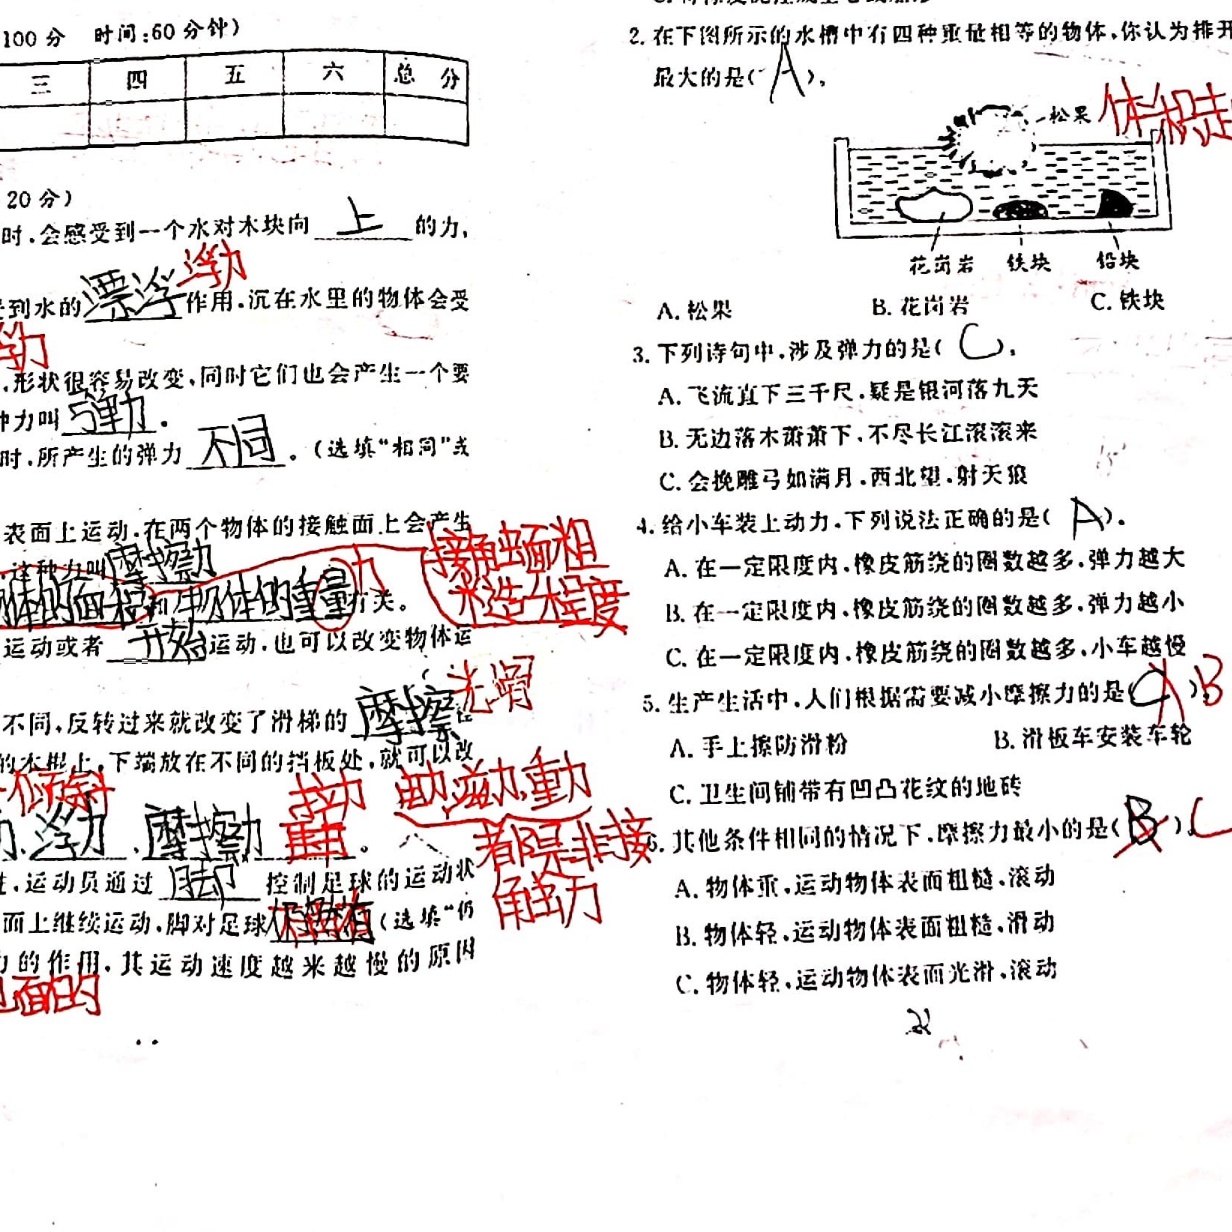 100分 时间:60分钟)
三 四 五 六 总分
20分)
时,会感受到一个水对木块向 上 的力,
到水的 漂浮 浮力 作用.沉在水里的物体会受
浮力
,形状很容易改变,同时它们也会产生一个要
力叫 弹力 .
时,所产生的弹力 不同 。(选填“相同”或
表面上运动,在两个物体的接触面上会产生
,这种力叫 摩擦力
物体的面积 和 物体的重量 力 有关。
接触面粗糙程度
运动或者 开始 运动,也可以改变物体运
不同,反转过来就改变了滑梯的 摩擦 光滑
的木棍上,下端放在不同的挡板处,就可以改
倾斜
浮力 、 摩擦力 、 。
电力,磁力,重力
都是非接触力
,运动员通过 脚 控制足球的运动状
面上继续运动,脚对足球 (选填“仍
力的作用,其运动速度越来越慢的原因
地面的
2.在下图所示的水槽中有四种重量相等的物体,你认为排开
最大的是( A ),
松果 体积
花岗岩 铁块 铅块
A.松果 B.花岗岩 C.铁块
3.下列诗句中,涉及弹力的是( C ),
A.飞流直下三千尺,疑是银河落九天
B.无边落木萧萧下,不尽长江滚滚来
C.会挽雕弓如满月,西北望,射天狼
4.给小车装上动力,下列说法正确的是( A ).
A.在一定限度内,橡皮筋绕的圈数越多,弹力越大
B.在一定限度内,橡皮筋绕的圈数越多,弹力越小
C.在一定限度内,橡皮筋绕的圈数越多,小车越慢
5.生产生活中,人们根据需要减小摩擦力的是( C ) B
A.手上擦防滑粉 B.滑板车安装车轮
C.卫生间铺带有凹凸花纹的地砖
6.其他条件相同的情况下,摩擦力最小的是( B ). C
A.物体重,运动物体表面粗糙,滚动
B.物体轻,运动物体表面粗糙,滑动
C.物体轻,运动物体表面光滑,滚动